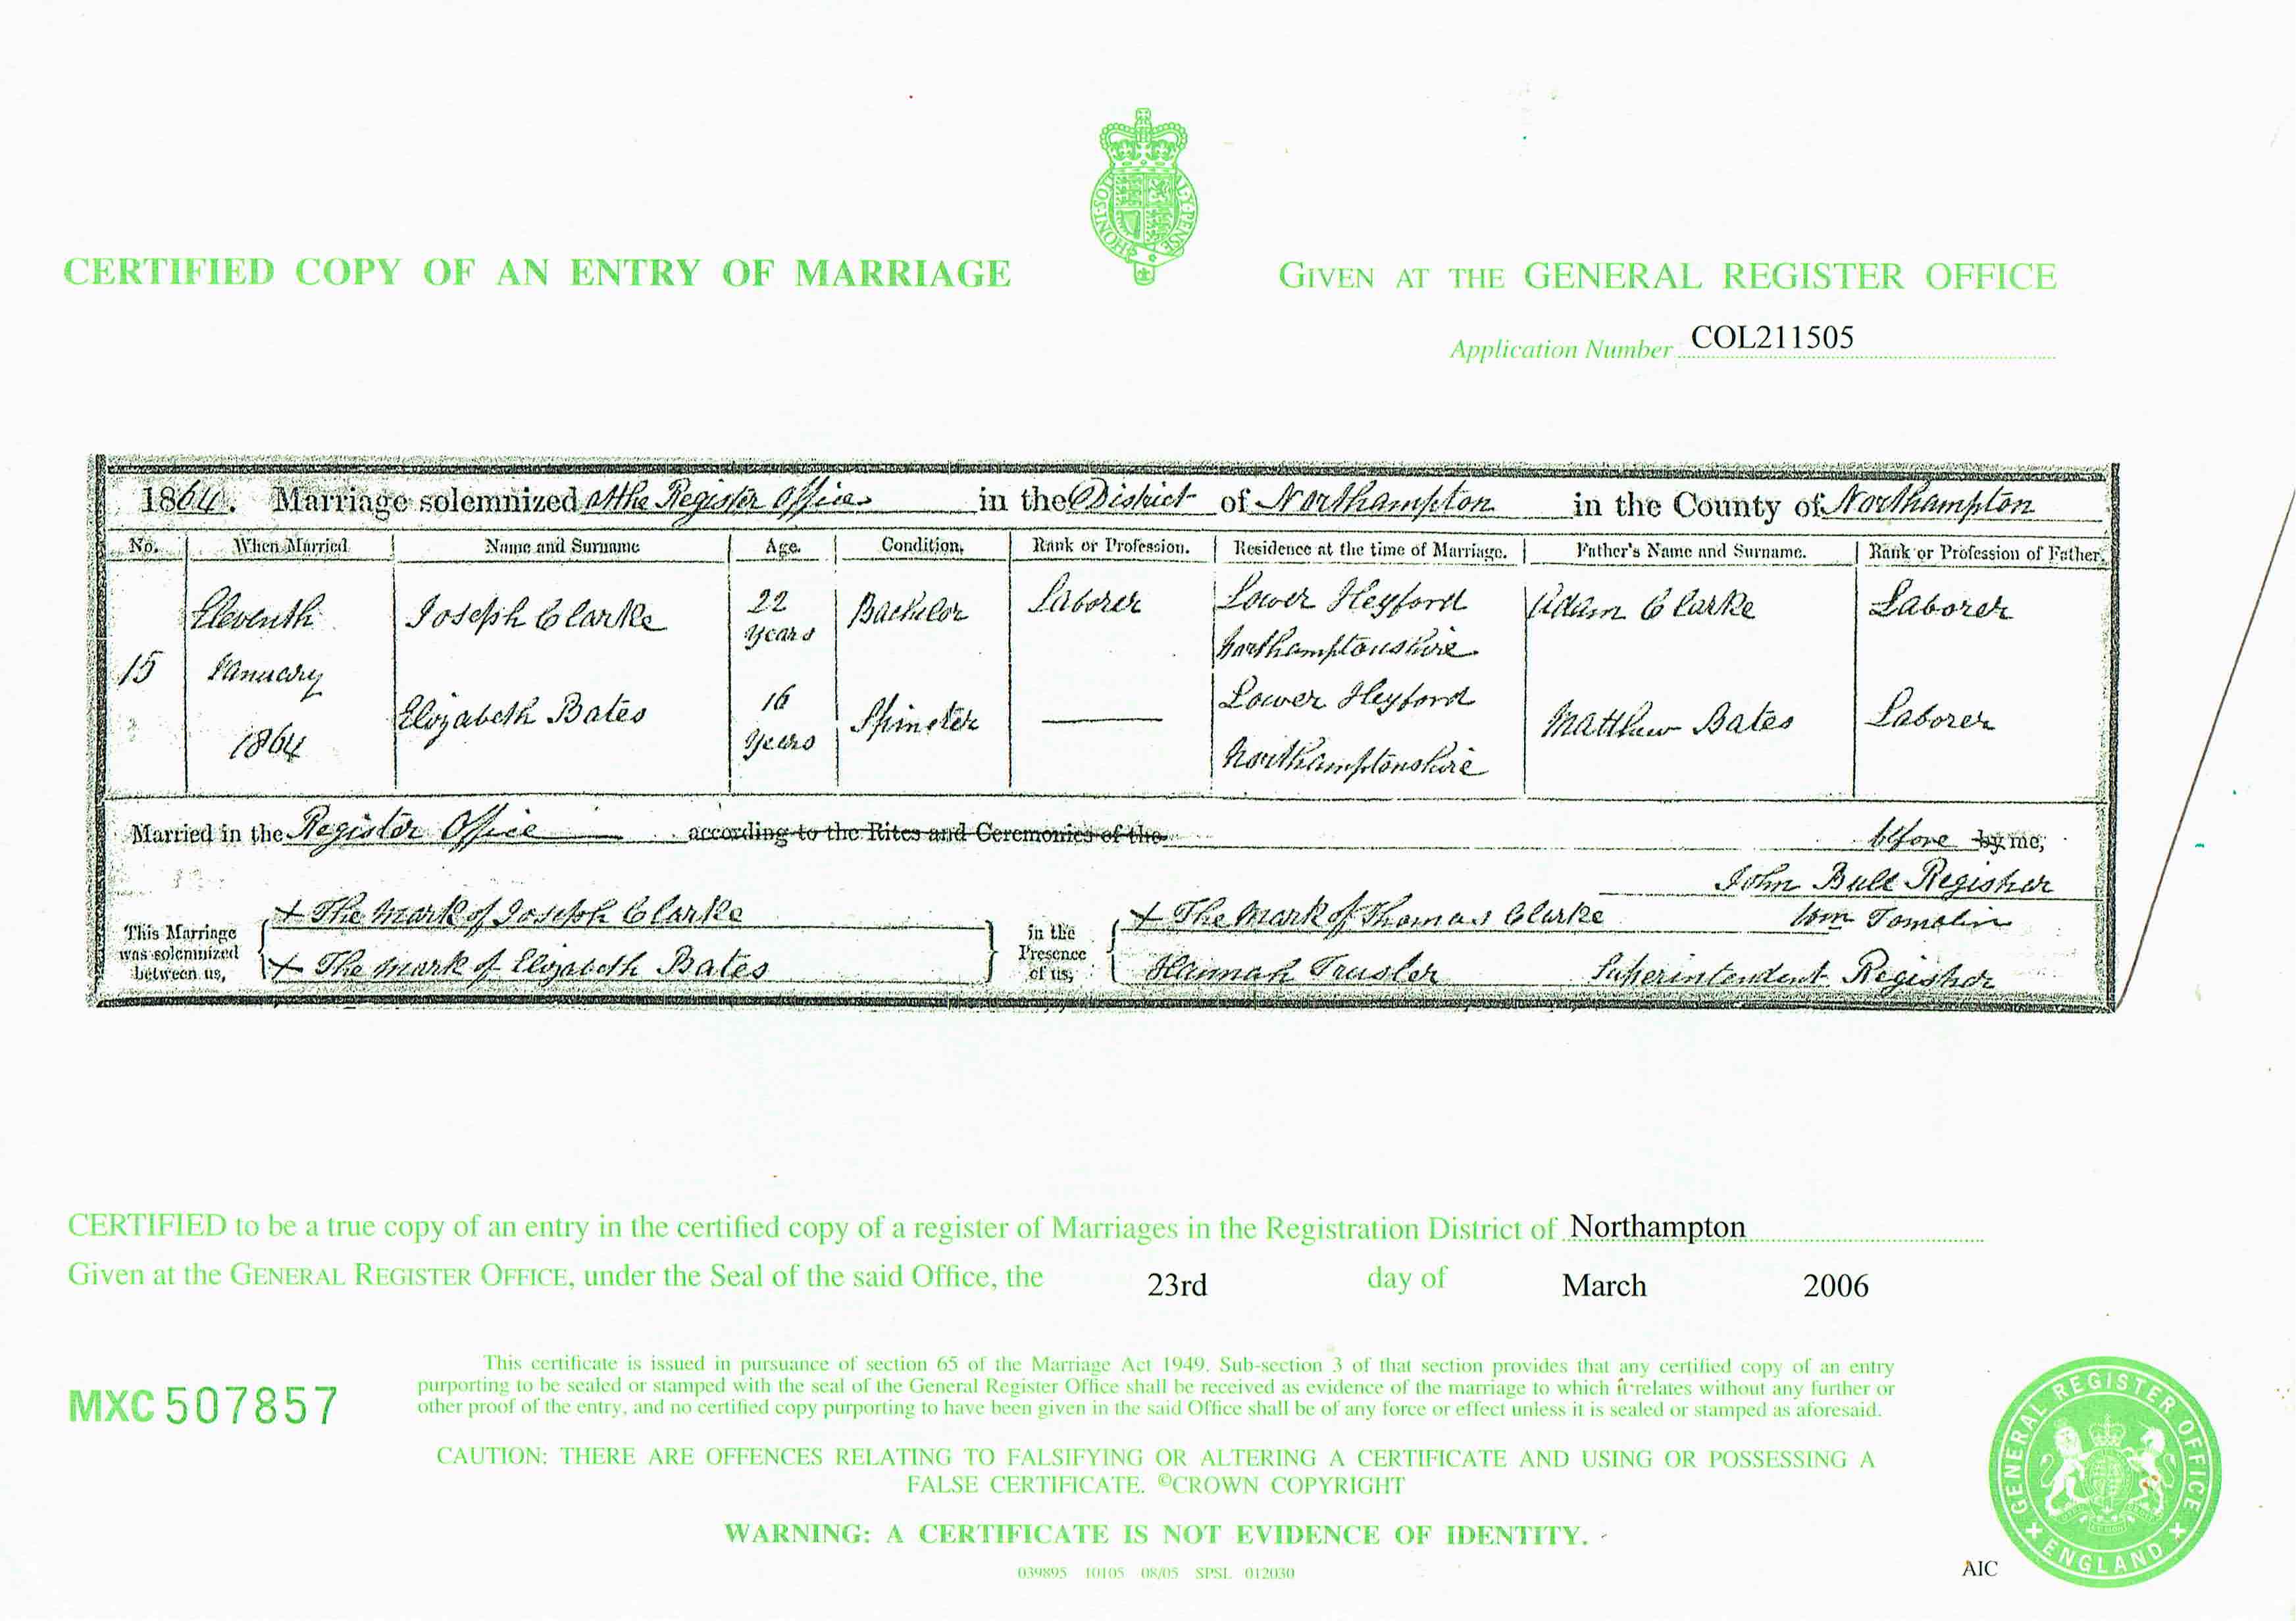 HONI·SOIT Y·PENSE
CERTIFIED COPY OF AN ENTRY OF MARRIAGE
GIVEN AT THE GENERAL REGISTER OFFICE
Application Number COL211505
1864. Marriage solemnized at the Register Office in the District of Northampton in the County of Northampton
No. When Married Name and Surname Age. Condition. Rank or Profession. Residence at the time of Marriage. Father's Name and Surname. Rank or Profession of Father.
15 Eleventh January 1864
Joseph Clarke 22 years Bachelor Laborer Lower Heyford Northamptonshire Adam Clarke Laborer
Elizabeth Bates 16 years Spinster Lower Heyford Northamptonshire Matthew Bates Laborer
Married in the Register Office according to the Rites and Ceremonies of the before by me,
John Bull Registrar
This Marriage was solemnized between us,
X The mark of Joseph Clarke
X The mark of Elizabeth Bates
in the Presence of us,
X The mark of Thomas Clarke
Hannah Trusler
Wm Tomalin
Superintendent Registrar
CERTIFIED to be a true copy of an entry in the certified copy of a register of Marriages in the Registration District of Northampton
Given at the GENERAL REGISTER OFFICE, under the Seal of the said Office, the 23rd day of March 2006
MXC 507857
This certificate is issued in pursuance of section 65 of the Marriage Act 1949. Sub-section 3 of that section provides that any certified copy of an entry
purporting to be sealed or stamped with the seal of the General Register Office shall be received as evidence of the marriage to which it relates without any further or
other proof of the entry, and no certified copy purporting to have been given in the said Office shall be of any force or effect unless it is sealed or stamped as aforesaid.
CAUTION: THERE ARE OFFENCES RELATING TO FALSIFYING OR ALTERING A CERTIFICATE AND USING OR POSSESSING A
FALSE CERTIFICATE. ©CROWN COPYRIGHT
WARNING: A CERTIFICATE IS NOT EVIDENCE OF IDENTITY.
039895 10105 08/05 SPSL 012030
AIC
GENERAL REGISTER OFFICE
+ ENGLAND +